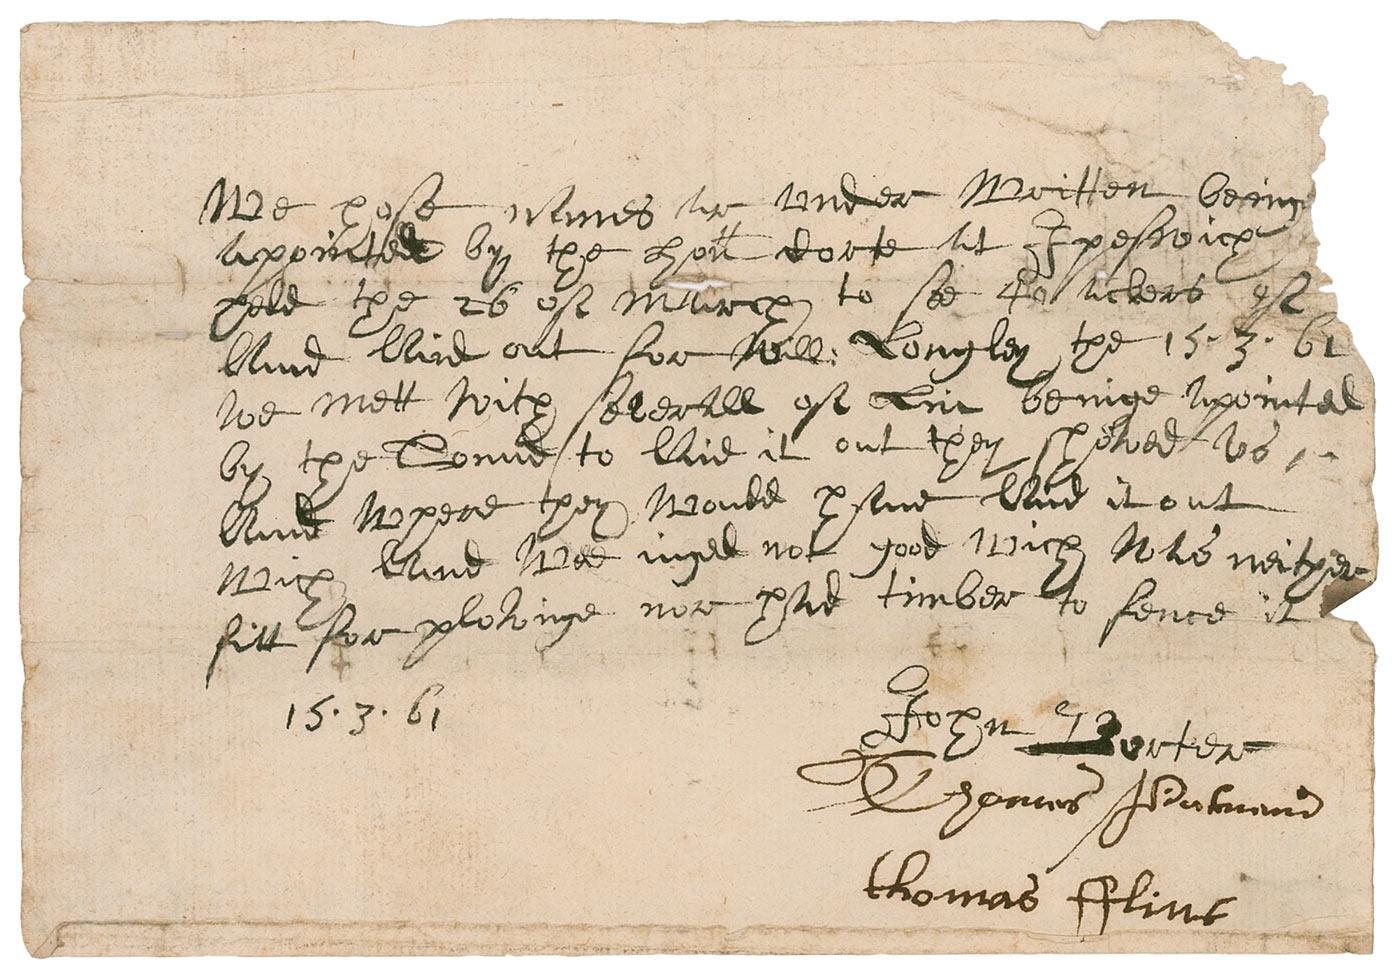 We hose names ar under Written being
apointed by the hon̄ll Corte at Ipeswich
held the 26 of march to see 40 ackers of
land laid out for Will: Longley the 15. 3. 61
we mett with severall of Lin beinge apointed
by the Tound to laid it out they shewed us
land where they Would have laid it out
wich land Wee inged not good wich was neither
fitt for plowinge nor had timber to fence it
15. 3. 61
John Porter
Thomas Putnam
thomas fflint